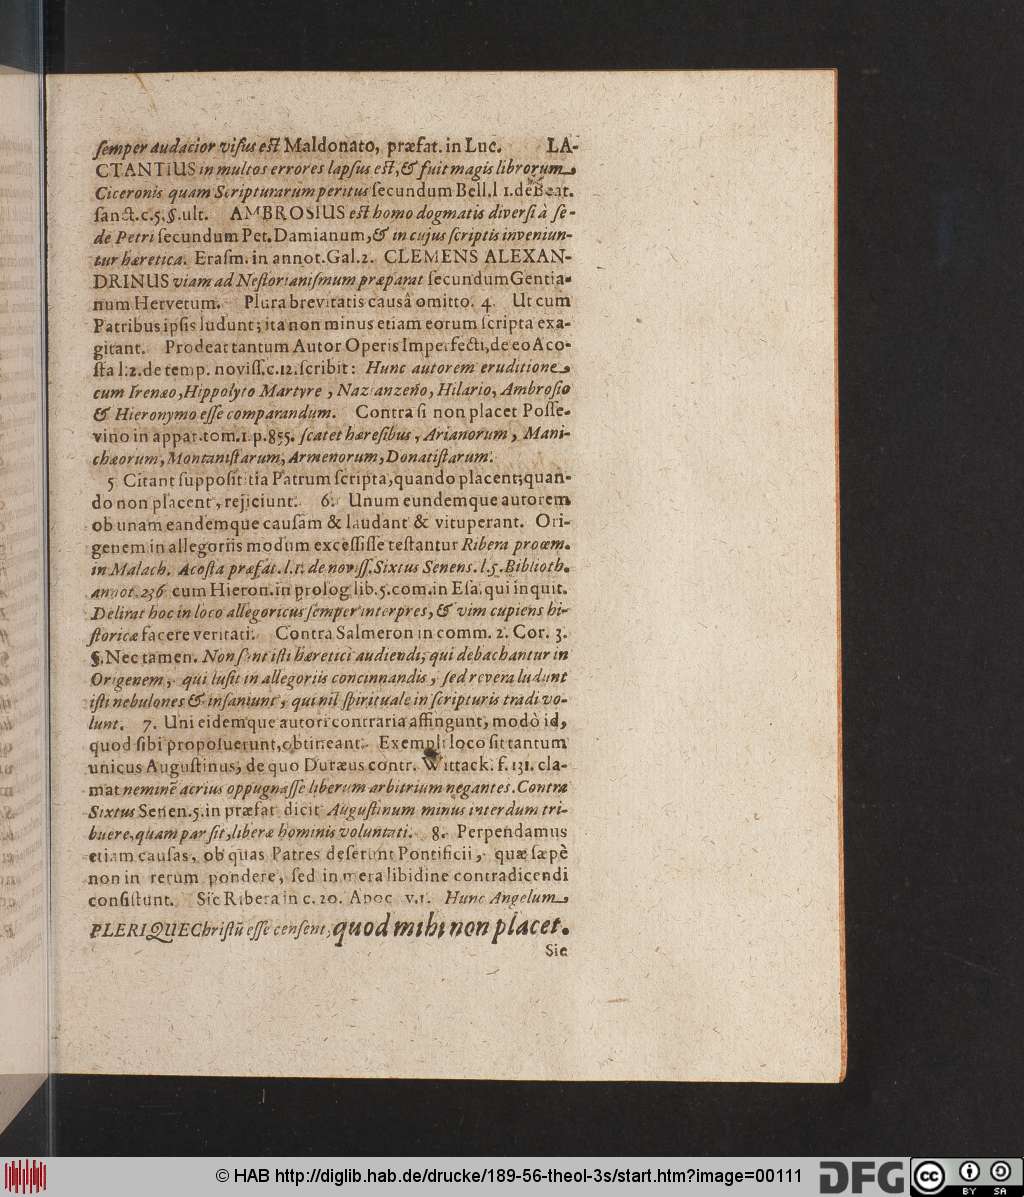 ſemper audacior viſus eſt Maldonato, præfat. in Luc. LA-
CTANTIUS in multos errores lapſus eſt, & fuit magis librorum
Ciceronis quam Scripturarum peritus ſecundum Bell. l 1. de Beat.
ſanct. c. 5. §. ult. AMBROSIUS eſt homo dogmatis diverſi à ſe-
de Petri ſecundum Pet. Damianum, & in cujus ſcriptis inveniun-
tur hæretica. Eraſm. in annot. Gal. 2. CLEMENS ALEXAN-
DRINUS viam ad Neſtorianiſmum præparat ſecundum Gentia-
num Hervetum. Plura brevitatis causâ omitto. 4. Ut cum
Patribus ipſis ludunt; ita non minus etiam eorum ſcripta exa-
gitant. Prodeat tantum Autor Operis Imperfecti, de eo Aco-
ſta l: 2. de temp. noviſſ. c. 12. ſcribit: Hunc autorem eruditione
cum Irenæo, Hippolyto Martyre, Nazianzeno, Hilario, Ambroſio
& Hieronymo eſſe comparandum. Contra ſi non placet Poſſe-
vino in appar. tom. 1. p. 855. ſcatet hæreſibus, Arianorum, Mani-
chæorum, Montaniſtarum, Armenorum, Donatiſtarum.
5 Citant ſuppoſititia Patrum ſcripta, quando placent; quan-
do non placent, rejiciunt. 6. Unum eundemque autorem
ob unam eandemque cauſam & laudant & vituperant. Ori-
genem in allegoriis modum exceſſiſſe teſtantur Ribera proœm.
in Malach. Acoſta præfat. l. 1. de noviſſ. Sixtus Senens. l. 5. Biblioth.
annot. 236 cum Hieron. in prolog lib. 5. com. in Eſa. qui inquit.
Delirat hoc in loco allegoricus ſemper interpres, & vim cupiens hi-
ſtoricæ facere veritati. Contra Salmeron in comm. 2. Cor. 3.
§. Nec tamen. Non ſunt iſti hæretici audiendi, qui debachantur in
Origenem, qui luſit in allegoriis concinnandis, ſed revera ludunt
iſti nebulones & inſaniunt, qui nil ſpirituale in ſcripturis tradi vo-
lunt. 7. Uni eidemque autori contraria affingunt, modò id,
quod ſibi propoſuerunt, obtineant. Exempli loco ſit tantum
unicus Auguſtinus, de quo Duræus contr. Wittack. f. 131. cla-
mat neminē acrius oppugnaſſe liberum arbitrium negantes. Contra
Sixtus Senen. 5. in præfat dicit Auguſtinum minus interdum tri-
buere, quam par ſit, liberæ hominis voluntati. 8. Perpendamus
etiam cauſas, ob quas Patres deſerunt Pontificii, quæ ſæpè
non in rerum pondere, ſed in mera libidine contradicendi
conſiſtunt. Sic Ribera in c. 20. Apoc v. 1. Hunc Angelum
PLERIQUE Chriſtū eſſe cenſent, quod mihi non placet.
Sic
© HAB http://diglib.hab.de/drucke/189-56-theol-3s/start.htm?image=00111
DFG
cc BY SA